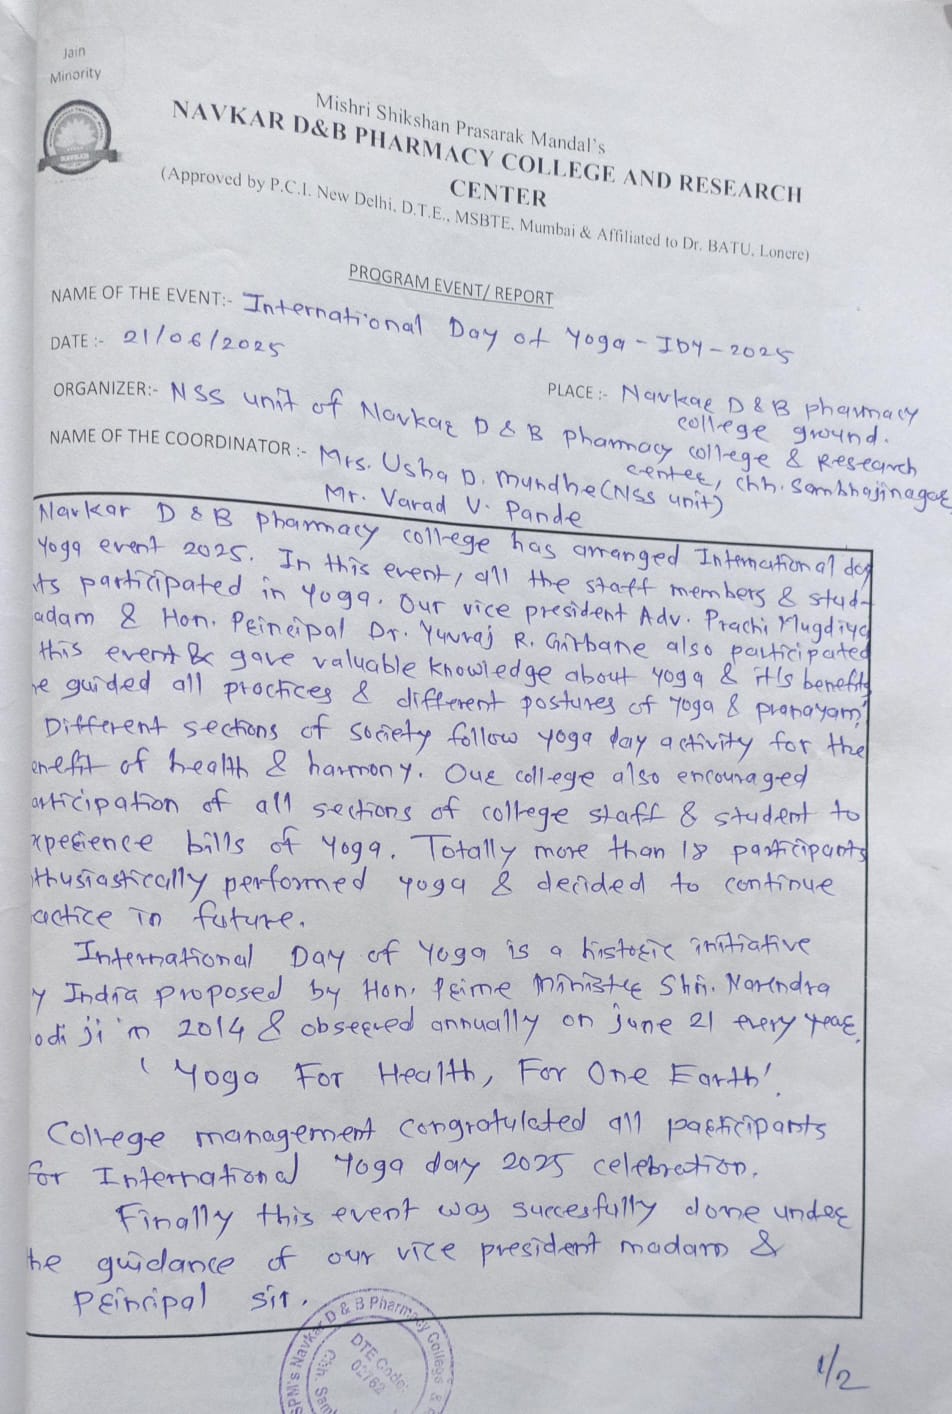 Jain
Minority
NAVKAR
Mishri Shikshan Prasarak Mandal's
NAVKAR D&B PHARMACY COLLEGE AND RESEARCH
CENTER
(Approved by P.C.I. New Delhi, D.T.E., MSBTE, Mumbai & Affiliated to Dr. BATU, Lonere)
PROGRAM EVENT/ REPORT
NAME OF THE EVENT:- International Day of Yoga - IDY - 2025
DATE :- 21/06/2025
PLACE :- Navkar D & B pharmacy
college ground.
ORGANIZER:- NSS unit of Navkar D & B pharmacy college & Research
center, chh. Sambhajinagar
NAME OF THE COORDINATOR :- Mrs. Usha D. Mundhe (NSS unit)
Mr. Varad V. Pande
Navkar D & B pharmacy college has arranged International day
Yoga event 2025. In this event, all the staff members & stud-
ts participated in yoga. Our vice president Adv. Prachi Mugdiya
adam & Hon. Principal Dr. Yuvraj R. Girbane also participated
this event & gave valuable knowledge about yoga & it's benefits
e guided all practices & different postures of yoga & pranayam.
Different sections of society follow yoga day activity for the
enefit of health & harmony. Our college also encouraged
articipation of all sections of college staff & student to
xperience bills of yoga. Totally more than 18 participants
thusiastically performed yoga & decided to continue
actice in future.
International Day of Yoga is a historic initiative
y India proposed by Hon. Prime Minister Shri. Narendra
odi ji in 2014 & observed annually on june 21 every year.
'Yoga For Health, For One Earth'.
College management congratulated all participants
for International Yoga day 2025 celebration.
Finally this event was succesfully done under
he guidance of our vice president madam &
Principal sir.
SPM's Navkar D & B Pharmacy College &
Chh. Sam
DTE Code:
1/2